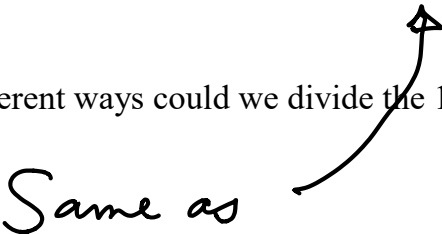 erent ways could we divide the 1
Same as